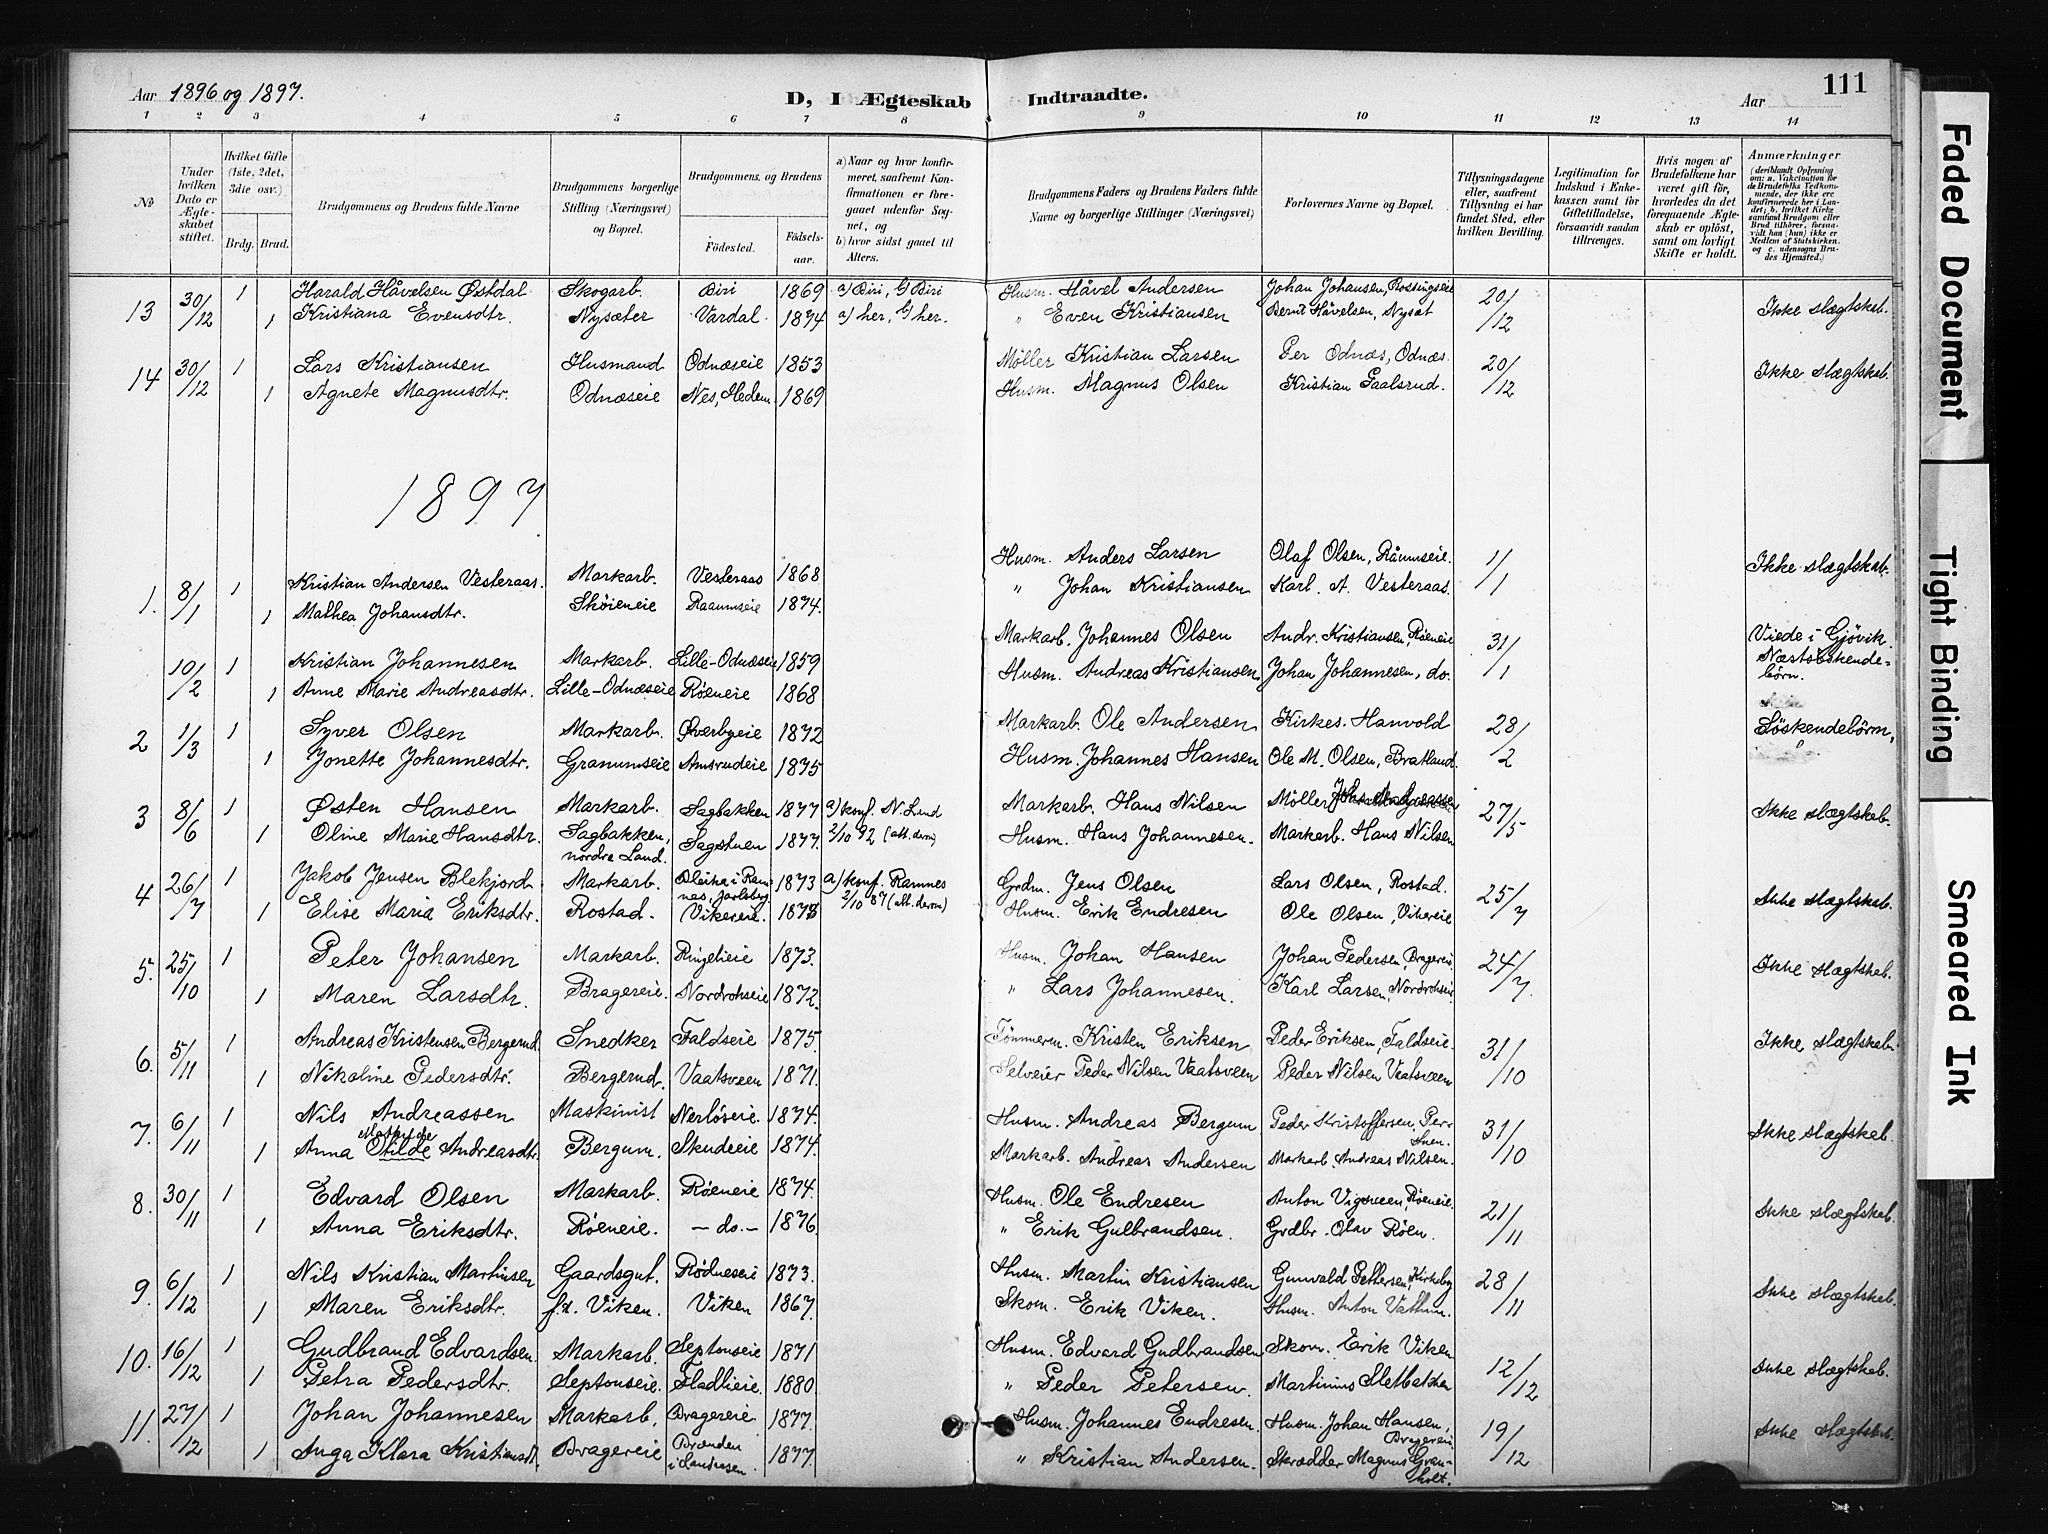 Aar 1896 og 1897.
D, I Ægteskab Indtraadte.
Aar
111
1 2 3 4 5 6 7 8 9 10 11 12 13 14
No
Under hvilken Dato er Ægteskabet stiftet.
Hvilket Gifte (1ste, 2det, 3die osv.)
Brdg. Brud.
Brudgommens og Brudens fulde Navne
Brudgommens borgerlige Stilling (Næringsvei) og Bopæl.
Brudgommens og Brudens
Födested. Födselsaar.
a) Naar og hvor konfirmeret, saafremt Konfirmationen er foregaaet udenfor Sognet, og
b) hvor sidst gaaet til Alters.
Brudgommens Faders og Brudens Faders fulde Navne og borgerlige Stillinger (Næringsvei)
Forlovernes Navne og Bopæl.
Tillysningsdagene eller, saafremt Tillysning ei har fundet Sted, efter hvilken Bevilling.
Legitimation for Indskud i Enkekassen samt for Giftetilladelse, forsaavidt saadan tiltrænges.
Hvis nogen af Brudefolkene har været gift før, hvorledes da det foregaaende Ægteskab er oplöst, samt om lovligt Skifte er holdt.
Anmærkninger (deriblandt Oplysning om: a. Vakcination for de Brudefolks Vedkommende, der ikke ere konfirmerede her i Landet; b. hvilket Kirkesamfund Brudgom eller Brud tilhörer, forsaavidt han (hun) ikke er Medlem af Statskirken. og c. udensogns Brudes Hjemsted.)
13 30/12 1 Harald Håvelsen Østdal Skogarb. Biri 1869 a) Biri, b) Biri Husm. Håvel Andersen Johan Johansen, 20/12 Ikke slægtskab.
1 Kristiana Evensdtr. Nysæter Vardal 1874 a) her, b) her. " Even Kristiansen Bernt Håvelsen, Nysæt
14 30/12 1 Lars Kristiansen Husmand Odnæseie 1853 Møller Kristian Larsen Per Odnæs, Odnæs. 20/12 Ikke slægtskab.
1 Agnete Magnusdtr. Odnæseie Nes, Hedem. 1869 Husm. Magnus Olsen Kristian Paalsrud.
1897
1. 8/1 1 Kristian Andersen Vesteraas. Markarb. Vesteraas 1868 Husm. Anders Larsen Olaf Olsen, Råumseie. 1/1 Ikke slægtskab.
1 Mathea Johansdtr. Skøieneie Raaumseie 1874. " Johan Kristiansen Karl. A. Vesteraas.
10/2 1 Kristian Johannesen Markarb. Lille-Odnæseie 1859 Markarb. Johannes Olsen Andr. Kristiansen, Røeneie 31/1 Viede i Gjövik. Næstsöskendebörn.
1 Anne Marie Andreasdtr. Lille-Odnæseie Røeneie 1868 Husm. Andreas Kristiansen Johan Johannesen, do.
2 1/3 1 Syver Olsen Markarb. Øverbyeie 1872 Markarb. Ole Andersen Kirkes. Hanvold 28/2 Söskendebörn,
1 Jonette Johannesdtr. Granumseie Amsrudeie 1875 Husm. Johannes Hansen Ole M. Olsen, Bratland.
3 8/6 1 Østen Hansen Markarb. Sagbakken 1877 a) konf. N. Land Markarb. Hans Nilsen Møller Johs. Andreassen 27/5 Ikke slægtskab.
1 Oline Marie Hansdtr. Sagbakken, nordre Land. Sagstuen 1877. 2/10 92 (att. derom) Husm. Hans Johannesen. Markarb. Hans Nilsen
4 26/7 1 Jakob Jensen Blekjord Markarb. Bleike i Ramnes, Jarlsberg 1873 a) konf. Ramnes Grdm. Jens Olsen Lars Olsen, Rostad. 25/7 Ikke slægtskab.
1 Elise Maria Eriksdtr. Rostad. Vikereie. 1873 2/10 87 (att. derom) Husm. Erik Endresen Ole Olsen, Vikereie
5. 25/10 1 Peter Johansen Markarb. Ringelieie 1873. Husm. Johan Hansen Johan Pedersen, Bragereie 24/7. Ikke slægtskab.
1 Maren Larsdtr. Bragereie. Nordrohseie 1872. " Lars Johannesen. Karl Larsen, Nordrohseie
6. 5/11 1 Andreas Kristensen Bergerud. Snedker Faldseie 1875. Tömmerm. Kristen Eriksen Peder Eriksen, Faldseie. 31/10 Ikke slægtskab.
1 Nikoline Pedersdtr. Bergerud. Vaatsveen 1871. Selveier Peder Nilsen Vaatsveen Peder Nilsen Vaatsveen
7. 6/11 1 Nils Andreassen Maskinist Nerløseie. 1874. Husm. Andreas Bergum Peder Kristoffersen, 31/10 Ikke slægtskab.
1 Anna Otilde Andreasdtr. Bergum. Skudeie 1874. Markarb. Andreas Andersen Markarb. Andreas Nilsen.
8. 30/11 1 Edvard Olsen Markarb. Røeneie 1874. Husm. Ole Endresen Anton Vigsveen, Røeneie. 21/11 Ikke slægtskab.
1 Anna Eriksdtr. Røeneie. - do. - 1876 " Erik Gulbrandsen. Grdbr. Olav Röen.
9. 6/12 1 Nils Kristian Martinsen Gaardsgut. Rødneseie 1873. Husm. Martin Kristiansen Gunvald Pettersen, Kirkeby 28/11 Ikke slægtskab.
1 Maren Eriksdtr. f.t. Viken. Viken 1867. Skom. Erik Viken. Husm. Anton Vathum.
10. 16/12 1 Gudbrand Edvardsen. Markarb. Septonseie 1871 Husm. Edvard Gudbrandsen Skom. Erik Viken 12/12 Ikke slægtskab.
1 Petra Pedersdtr. Septonseie. Fladlieie. 1880. " Peder Petersen. Martinius Sletbakken
11. 27/12 1 Johan Johannesen Markarb. Bragereie 1877. Husm. Johannes Endresen. Husm. Johan Hansen, Bragereie 19/12 Ikke slægtskab.
1 Inga Klara Kristiansdt. Bragereie Brænden i Landåsen. 1877. " Kristian Andersen. Skrædder Magnus Granholt.
Faded Document
Tight Binding
Smeared Ink